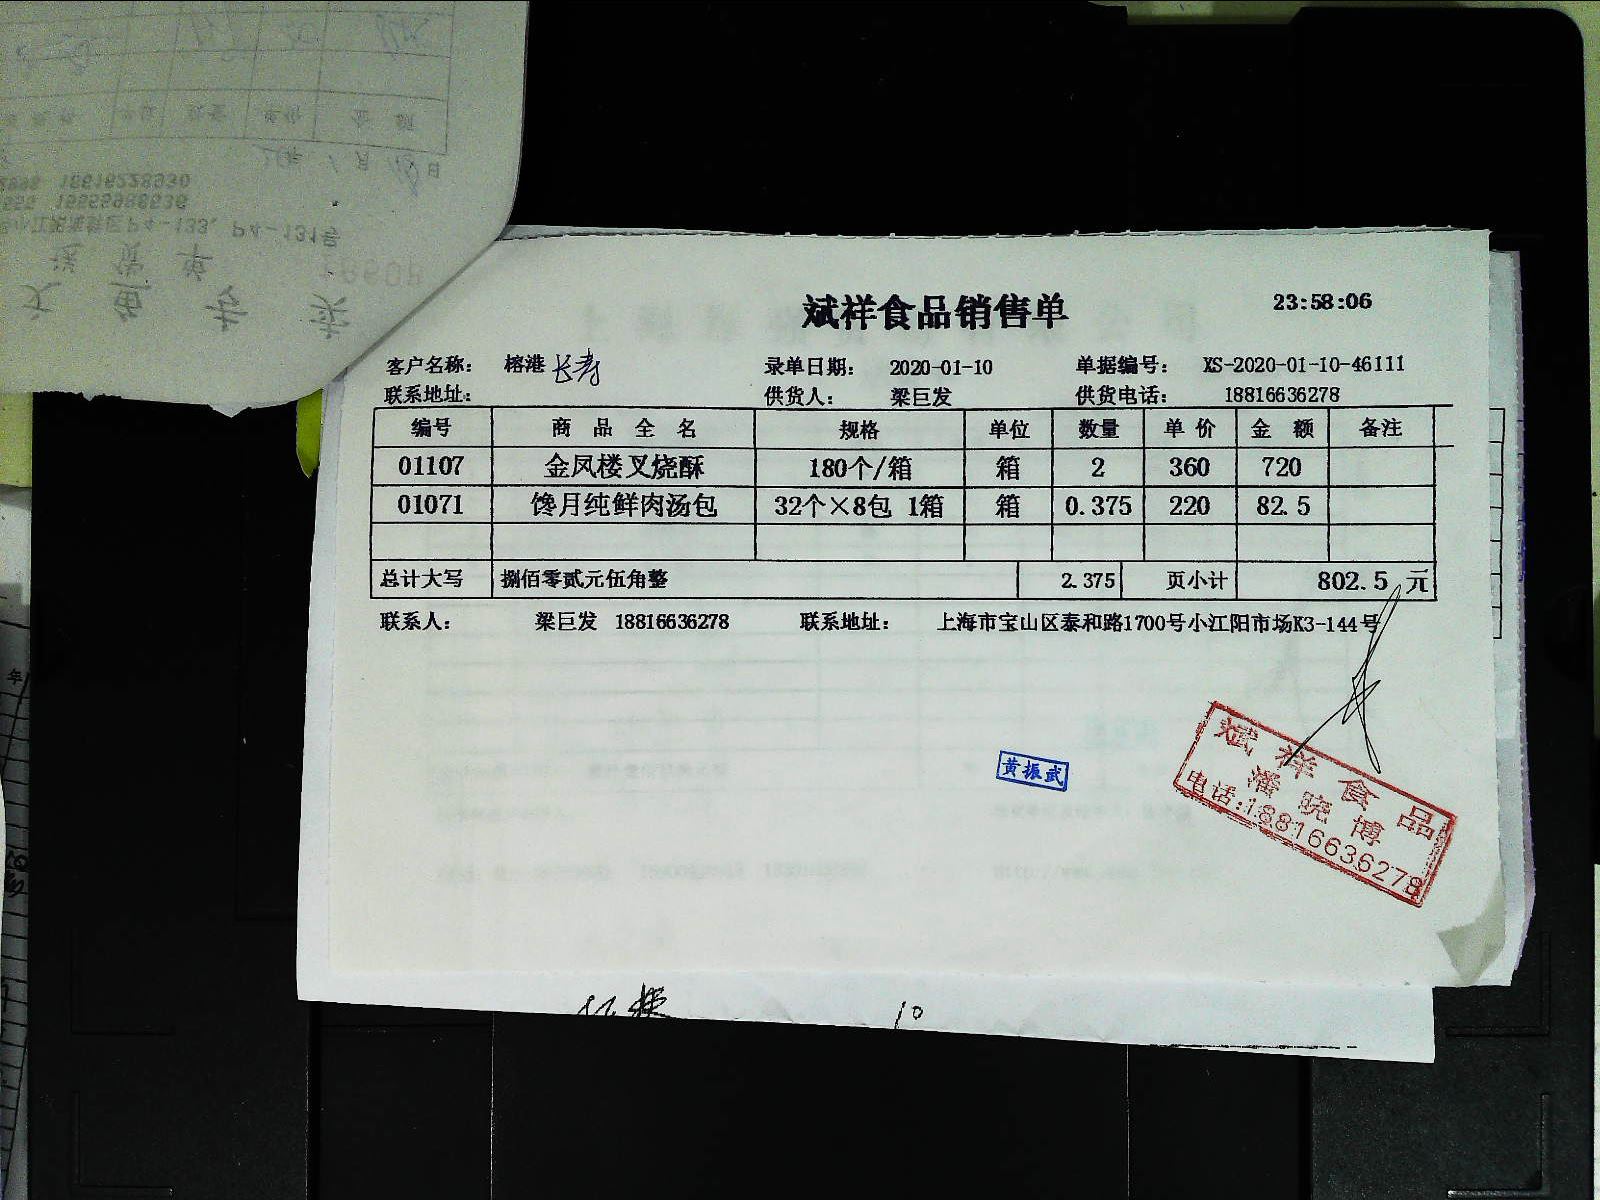 斌祥食品销售单 23:58:06
客户名称： 榕港 长寿 录单日期： 2020-01-10 单据编号： XS-2020-01-10-46111
联系地址： 供货人： 梁巨发 供货电话： 18816636278
编号 商品全名 规格 单位 数量 单价 金额 备注
01107 金凤楼叉烧酥 180个/箱 箱 2 360 720
01071 馋月纯鲜肉汤包 32个×8包 1箱 箱 0.375 220 82.5
总计大写 捌佰零贰元伍角整 2.375 页小计 802.5 元
联系人： 梁巨发 18816636278 联系地址： 上海市宝山区泰和路1700号小江阳市场K3-144号
黄振武
斌祥食品
潘晓博
电话:18816636278